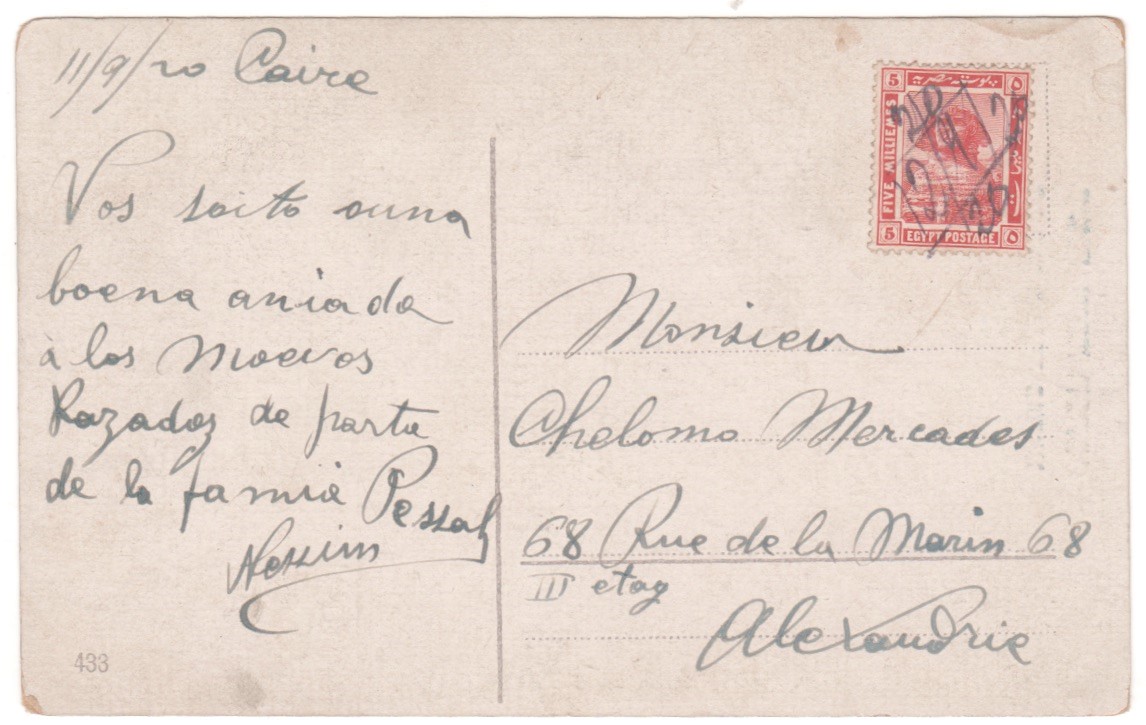 11/9/20 Caire
Vos soito ouna
boena aniada
à los Moevos
Kazados de parte
de la famie Pessah
Nessim
433
5 بوستة مصرية ٥
FIVE MILLIEMES
5 EGYPT POSTAGE ٥
Monsieur
Chelomo Mercades
68 Rue de la Marin 68
III etag
Alexandrie